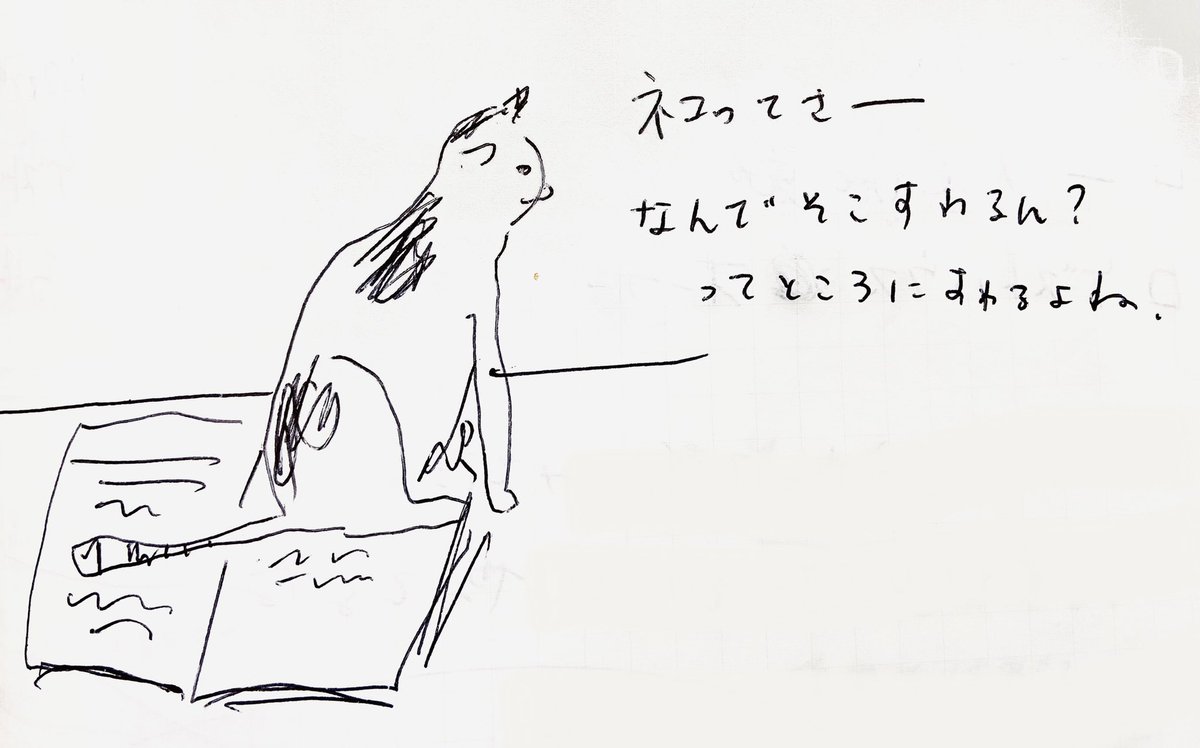 ネコってさー
なんでそこすわるん?
ってところにすわるよね.